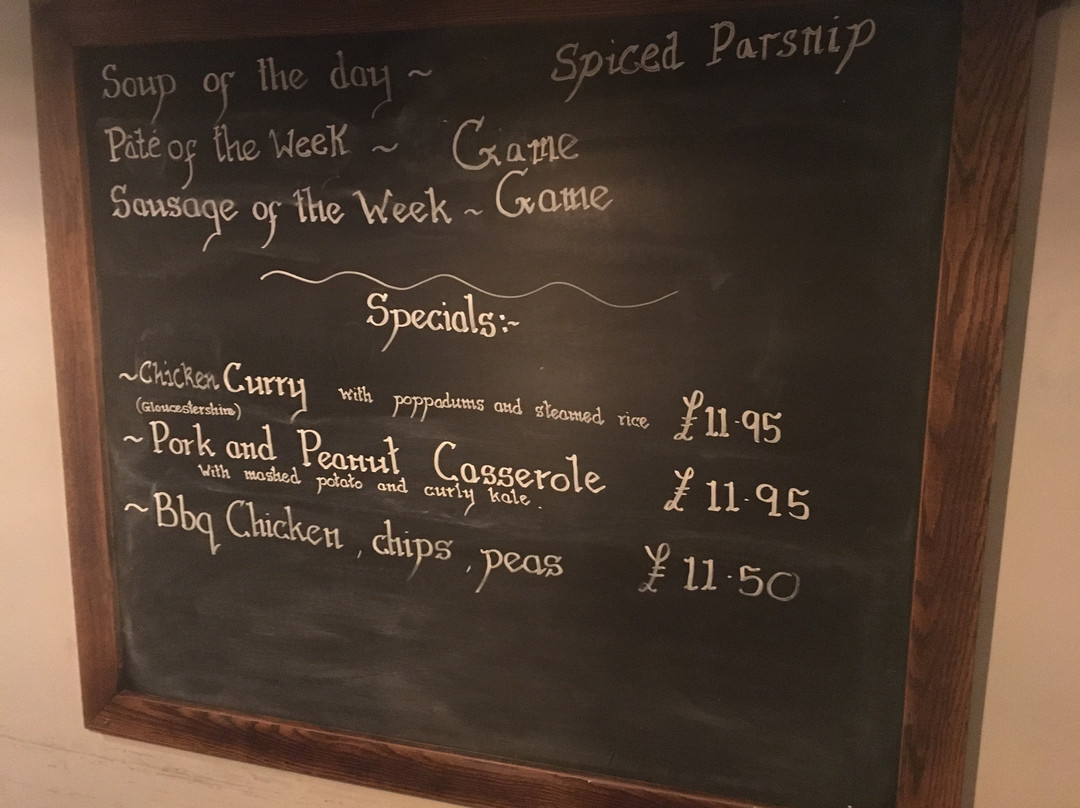 Soup of the day ~ Spiced Parsnip
Pâté of the Week ~ Game
Sausage of the Week ~ Game
Specials:~
~Chicken Curry with poppadums and steamed rice £11.95
(Gloucestershire)
~Pork and Peanut Casserole £11.95
With mashed potato and curly kale.
~Bbq Chicken, chips, peas £11.50